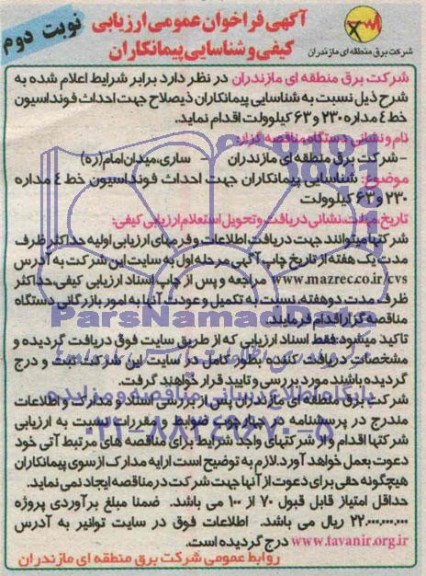 آگهی فراخوان عمومی ارزیابی
کیفی و شناسایی پیمانکاران
نوبت دوم
شرکت برق منطقه ای مازندران
شرکت برق منطقه ای مازندران در نظر دارد برابر شرایط اعلام شده به
شرح ذیل نسبت به شناسایی پیمانکاران ذیصلاح جهت احداث فونداسیون
خط ٤ مداره ٢٣٠ و ٦٣ کیلوولت اقدام نماید.
نام و نشانی دستگاه مناقصه گزار:
- شرکت برق منطقه ای مازندران - ساری، میدان امام (ره)
موضوع: شناسایی پیمانکاران جهت احداث فونداسیون خط ٤ مداره
٢٣٠ و ٦٣ کیلوولت
تاریخ، مهلت، نشانی دریافت و تحویل استعلام ارزیابی کیفی:
شرکتها میتوانند جهت دریافت اطلاعات و فرمهای ارزیابی اولیه حداکثر ظرف
مدت یک هفته از تاریخ چاپ آگهی مرحله اول به سایت این شرکت به آدرس
www.mazrec.co.ir/cvs مراجعه و پس از چاپ اسناد ارزیابی کیفی، حداکثر
ظرف مدت دو هفته، نسبت به تکمیل و عودت آنها به امور بازرگانی دستگاه
مناقصه گزار اقدام فرمایند.
تاکید میشود فقط اسناد ارزیابی که از طریق سایت فوق دریافت گردیده و
مشخصات دریافت کننده بطور کامل در سایت این شرکت ثبت و درج
گردیده باشند مورد بررسی و تایید قرار خواهند گرفت.
شرکت برق منطقه ای مازندران پس از بررسی اسناد و مدارک و اطلاعات
مندرج در پرسشنامه در چهارچوب ضوابط و مقررات نسبت به ارزیابی
شرکتها اقدام و از شرکتهای واجد شرایط برای مناقصه های مرتبط آتی خود
دعوت بعمل خواهد آورد. لازم به توضیح است ارایه مدارک از سوی پیمانکاران
هیچگونه حقی برای دعوت از آنها جهت شرکت در مناقصه ایجاد نمی نماید.
حداقل امتیاز قابل قبول ٧٠ از ١٠٠ می باشد. ضمنا مبلغ برآوردی پروژه
٢٢.٠٠٠.٠٠٠.٠٠٠ ریال می باشد. اطلاعات فوق در سایت توانیر به آدرس
www.tavanir.org.ir درج گردیده است.
روابط عمومی شرکت برق منطقه ای مازندران
ParsNamadData
پایگاه اطلاع رسانی مناقصه و مزایده